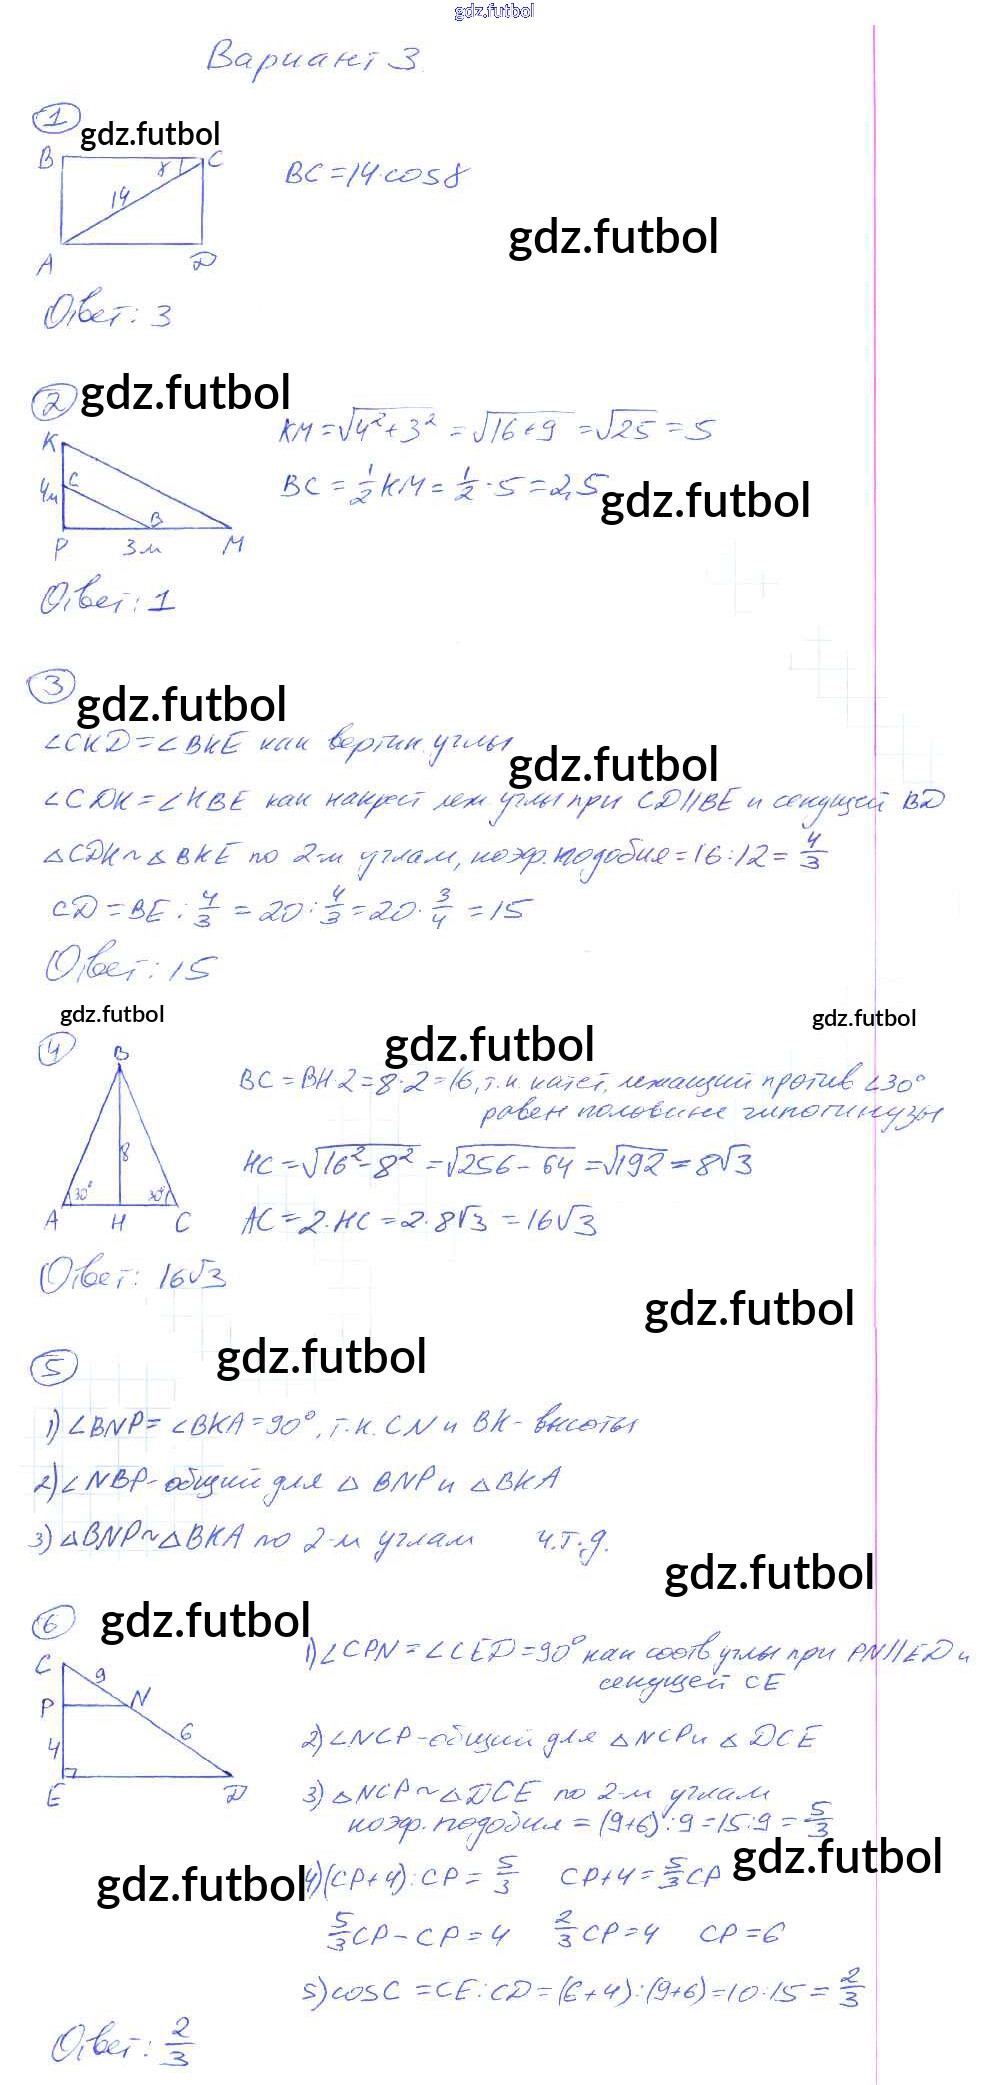 gdz.futbol
Вариант 3
1
gdz.futbol
B γ C
14
A D
BC=14·cosγ
gdz.futbol
Ответ: 3
2 gdz.futbol
K
4м C
B
P 3м M
KM=√4²+3² =√16+9 =√25 =5
BC=1/2KM=1/2·5=2,5
gdz.futbol
Ответ: 1
3 gdz.futbol
∠CKD=∠BKE как вертик. углы
gdz.futbol
∠CDK=∠KBE как накрест леж. углы при CD||BE и секущей BD
△CDK~△BKE по 2-м углам, коэф. подобия=16:12=4/3
CD=BE:4/3=20:4/3=20·3/4=15
Ответ: 15
gdz.futbol gdz.futbol gdz.futbol
4
B
8
30° 30°
A H C
BC=BH·2=8·2=16, т.к. катет, лежащий против ∠30°
равен половине гипотинузы
HC=√16²-8² =√256-64 =√192=8√3
AC=2·HC=2·8√3=16√3
Ответ: 16√3
gdz.futbol
5 gdz.futbol
1) ∠BNP=∠BKA=90°, т.к. CN и BK- высоты
2) ∠NBP-общий для △BNP и △BKA
3) △BNP~△BKA по 2-м углам ч.т.д.
gdz.futbol
6 gdz.futbol
C
9
P N
4 6
E D
1) ∠CPN=∠CED=90° как соотв углы при PN||ED и
секущей CE
2) ∠NCP-общий для △NCP и △DCE
3) △NCP~△DCE по 2-м углам
коэф. подобия=(9+6):9=15:9=5/3
gdz.futbol
gdz.futbol
4) (CP+4):CP=5/3 CP+4=5/3CP
5/3CP-CP=4 2/3CP=4 CP=6
5) cosC=CE:CD=(6+4):(9+6)=10:15=2/3
Ответ: 2/3